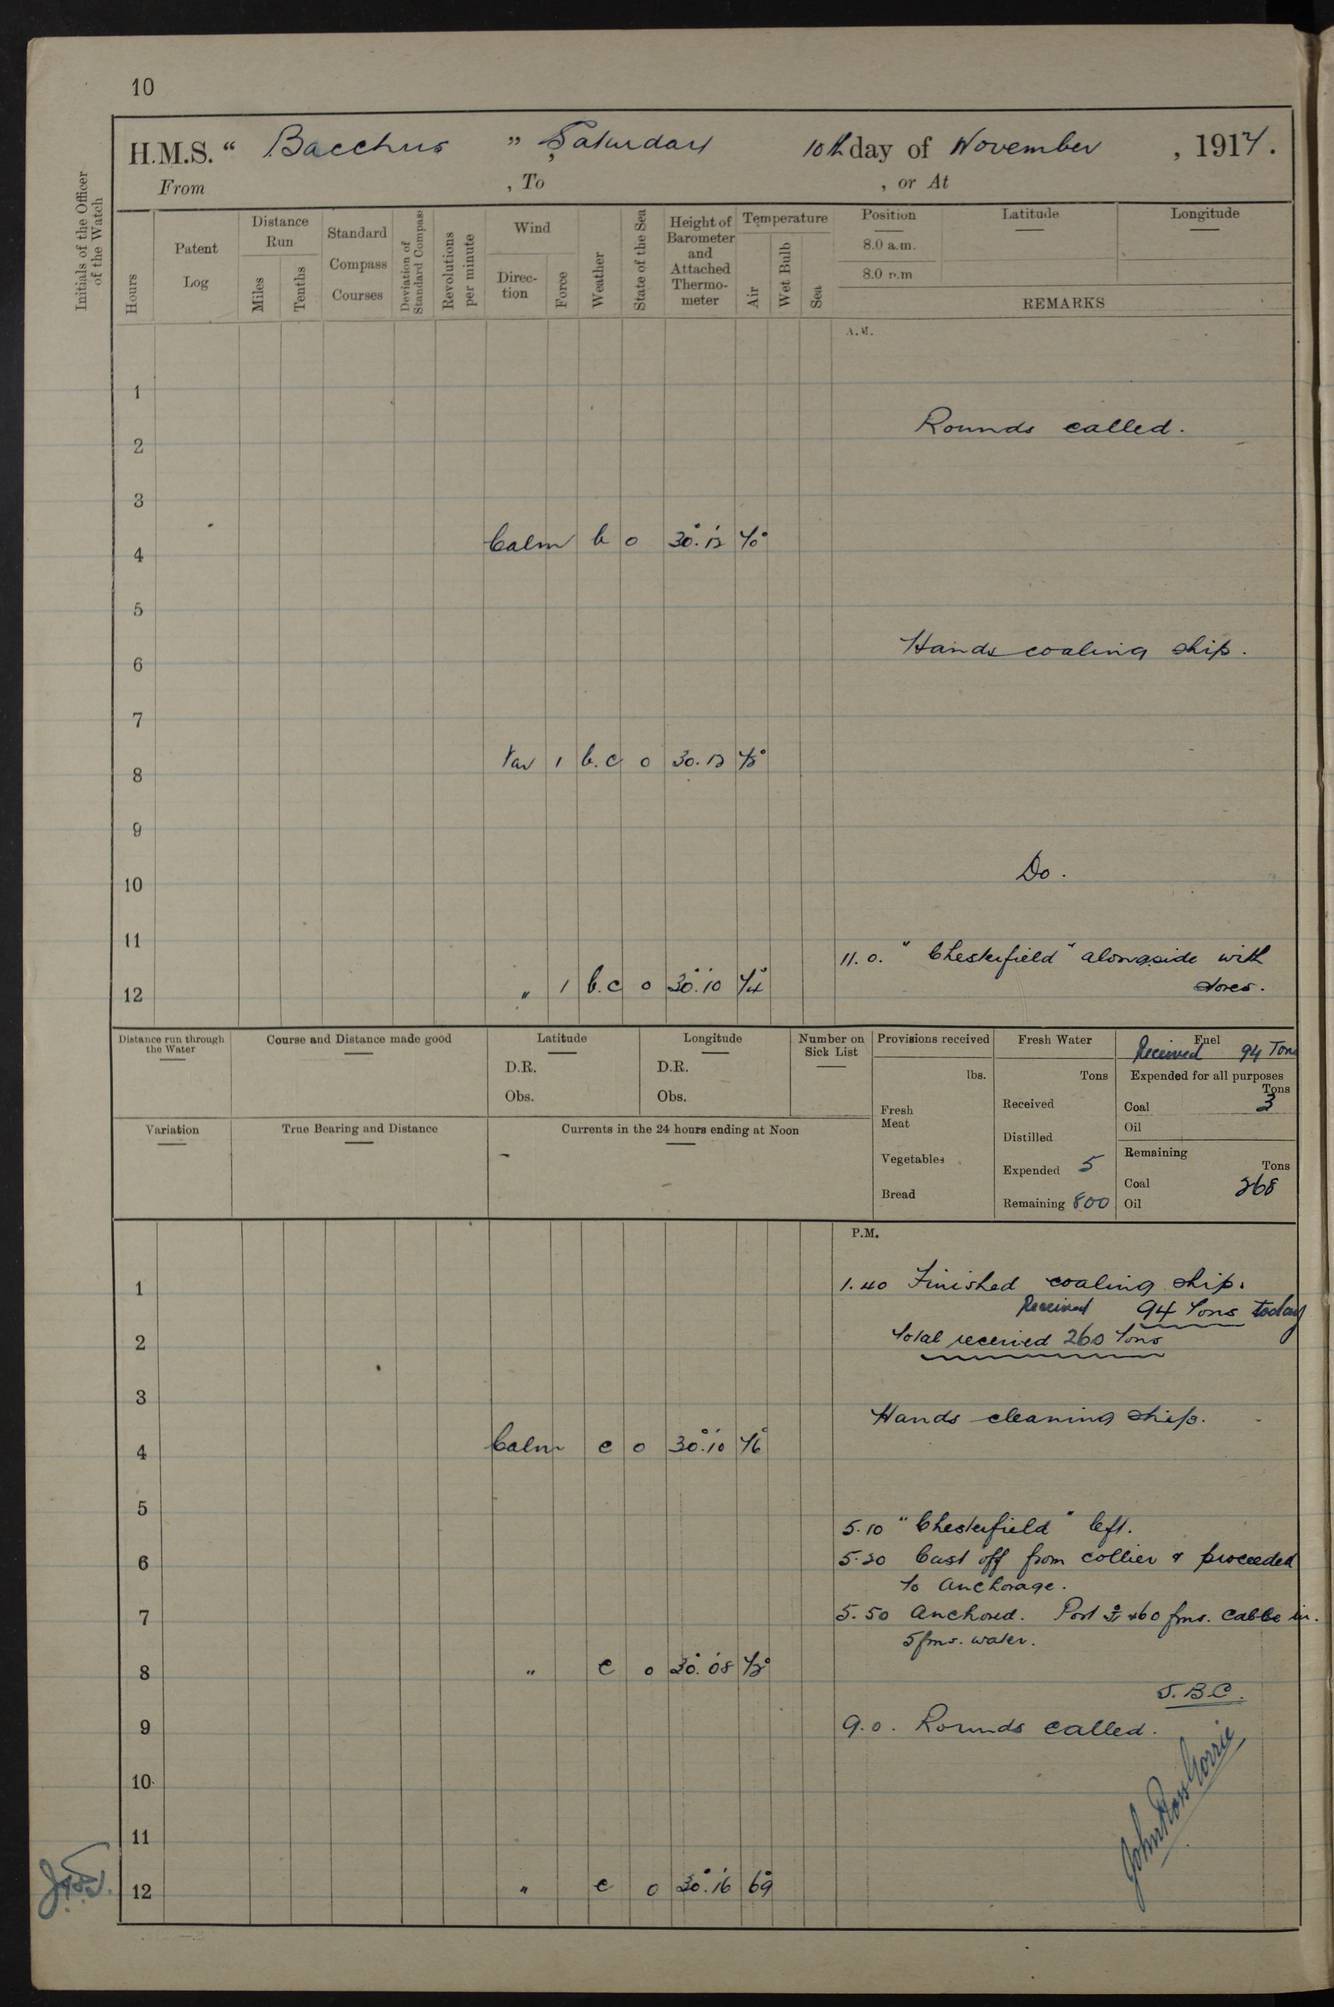 10
H.M.S. " Bacchus " Saturday 10th day of November, 1917.
From , To , or At
Initials of the Officer of the Watch
Hours
Patent Log
Distance Run
Miles
Tenths
Standard Compass Courses
Deviation of Standard Compass
Revolutions per minute
Wind
Direction
Force
Weather
State of the Sea
Height of Barometer and Attached Thermometer
Temperature
Air
Wet Bulb
Sea
Position Latitude Longitude
8.0 a.m.
8.0 p.m
REMARKS
A.M.
1
Rounds called.
2
3
4 Calm b 0 30.12 70°
5
6 Hands coaling ship.
7
8 Var 1 b.c 0 30.12 72°
9
10 Do.
11 11.0. "Chesterfield" alongside with
12 " 1 b.c 0 30.10 74° stores.
Distance run through the Water
Course and Distance made good
Latitude
D.R.
Obs.
Longitude
D.R.
Obs.
Number on Sick List
Provisions received
lbs.
Fresh Meat
Vegetables
Bread
Fresh Water
Tons
Received
Distilled
Expended 5
Remaining 800
Fuel
Received 94 Tons
Expended for all purposes
Tons
Coal 3
Oil
Remaining
Tons
Coal 268
Oil
Variation
True Bearing and Distance
Currents in the 24 hours ending at Noon
P.M.
1 1.40 Finished coaling ship.
Received 94 Tons today
2 Total received 260 Tons
3
Hands cleaning ship.
4 Calm c 0 30.10 76°
5
5.10 "Chesterfield" left.
6 5.20 Cast off from collier & proceeded
to anchorage.
7 5.50 Anchored. Port 60 fms. cable in.
5 fms. water.
8 " c 0 30.08 72°
J.B.C.
9 9.0. Rounds called.
10
11
John Ross Gorrie
12 " c 0 30.16 69°